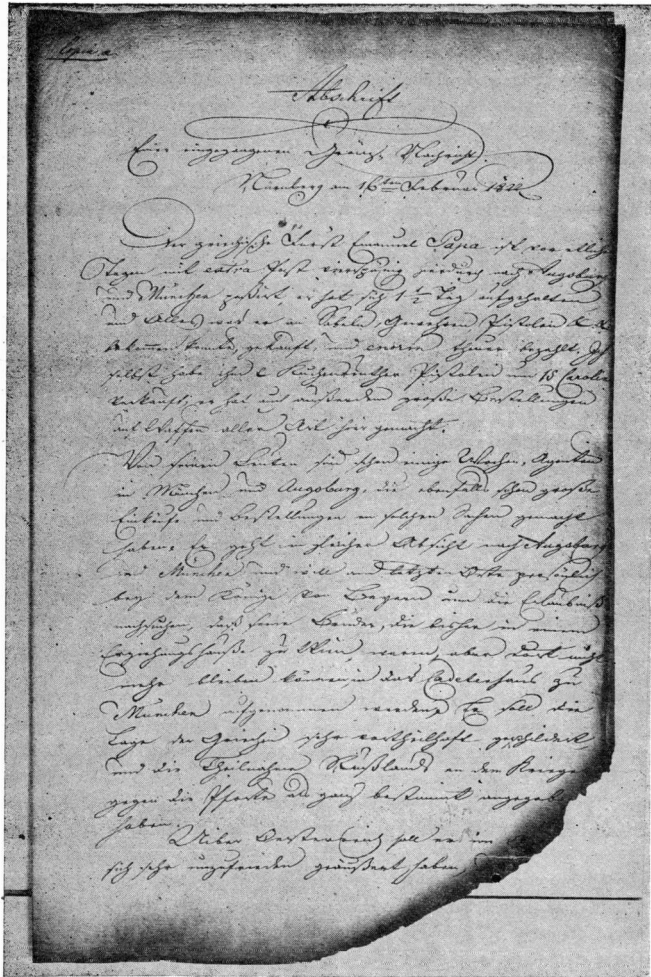 Copia
Abschrift
Einer eingegangenen Gränz-Nachricht.
Nürnberg am 16ten Februar 1822
Der griechische Fürst Emanuel Papa ist vor etlichen
Tagen mit extra Post vierspänig hierdurch nach Augsburg
und München passirt, er hat sich 1 1/2 Tag aufgehalten
und Alles was er an Säbeln, Gewehren Pistolen &
bekommen konnte, gekauft, und enorm theuer bezahlt. Ich
selbst habe ihm Kuchenreuther Pistolen um 15 Carolin
verkauft; er hat auch außerdem große Bestellungen
auf Waffen aller Art hier gemacht.
Von seinen Leuten sind schon einige Wochen, Agenten
in München und Augsburg, die ebenfalls schon große
Einkäufe und Bestellungen in solchen Sachen gemacht
haben. Er geht in gleicher Absicht nach Augsburg
und München und will am letzten Orte persönlich
bey dem Könige von Bayern um die Erlaubniß
nachsuchen, daß seine Brüder, die bisher in einem
Erziehungshauße zu Wien waren, aber dort nicht
mehr bleiben können, in das Cadetenhaus zu
München aufgenommen werden. Er soll die
Lage der Griechen sehr vortheilhaft geschildert
und die Theilnahme Rußlands an dem Kriege
gegen die Pforte als ganz bestimmt angegeb
haben.
Uiber Oesterreich soll er
sich sehr unzufrieden geäußert haben,